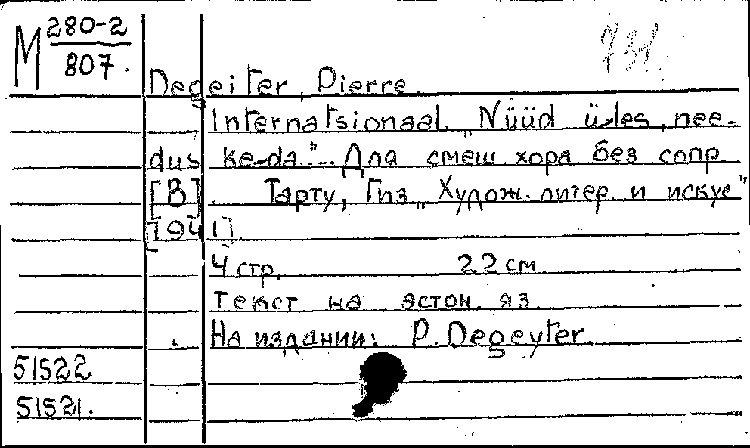 М 280-2
807.
Degeiter, Pierre
Internatsionaal „Nüüd üles, nee-
dus ke-da"... Для смеш хора без сопр
[В]. Тарту, Гиз „Худож. литер. и искус"
[1941]
4 стр. 22 см
Текст на эстон. яз.
На издании: P. Degeyter.
51522
51521.